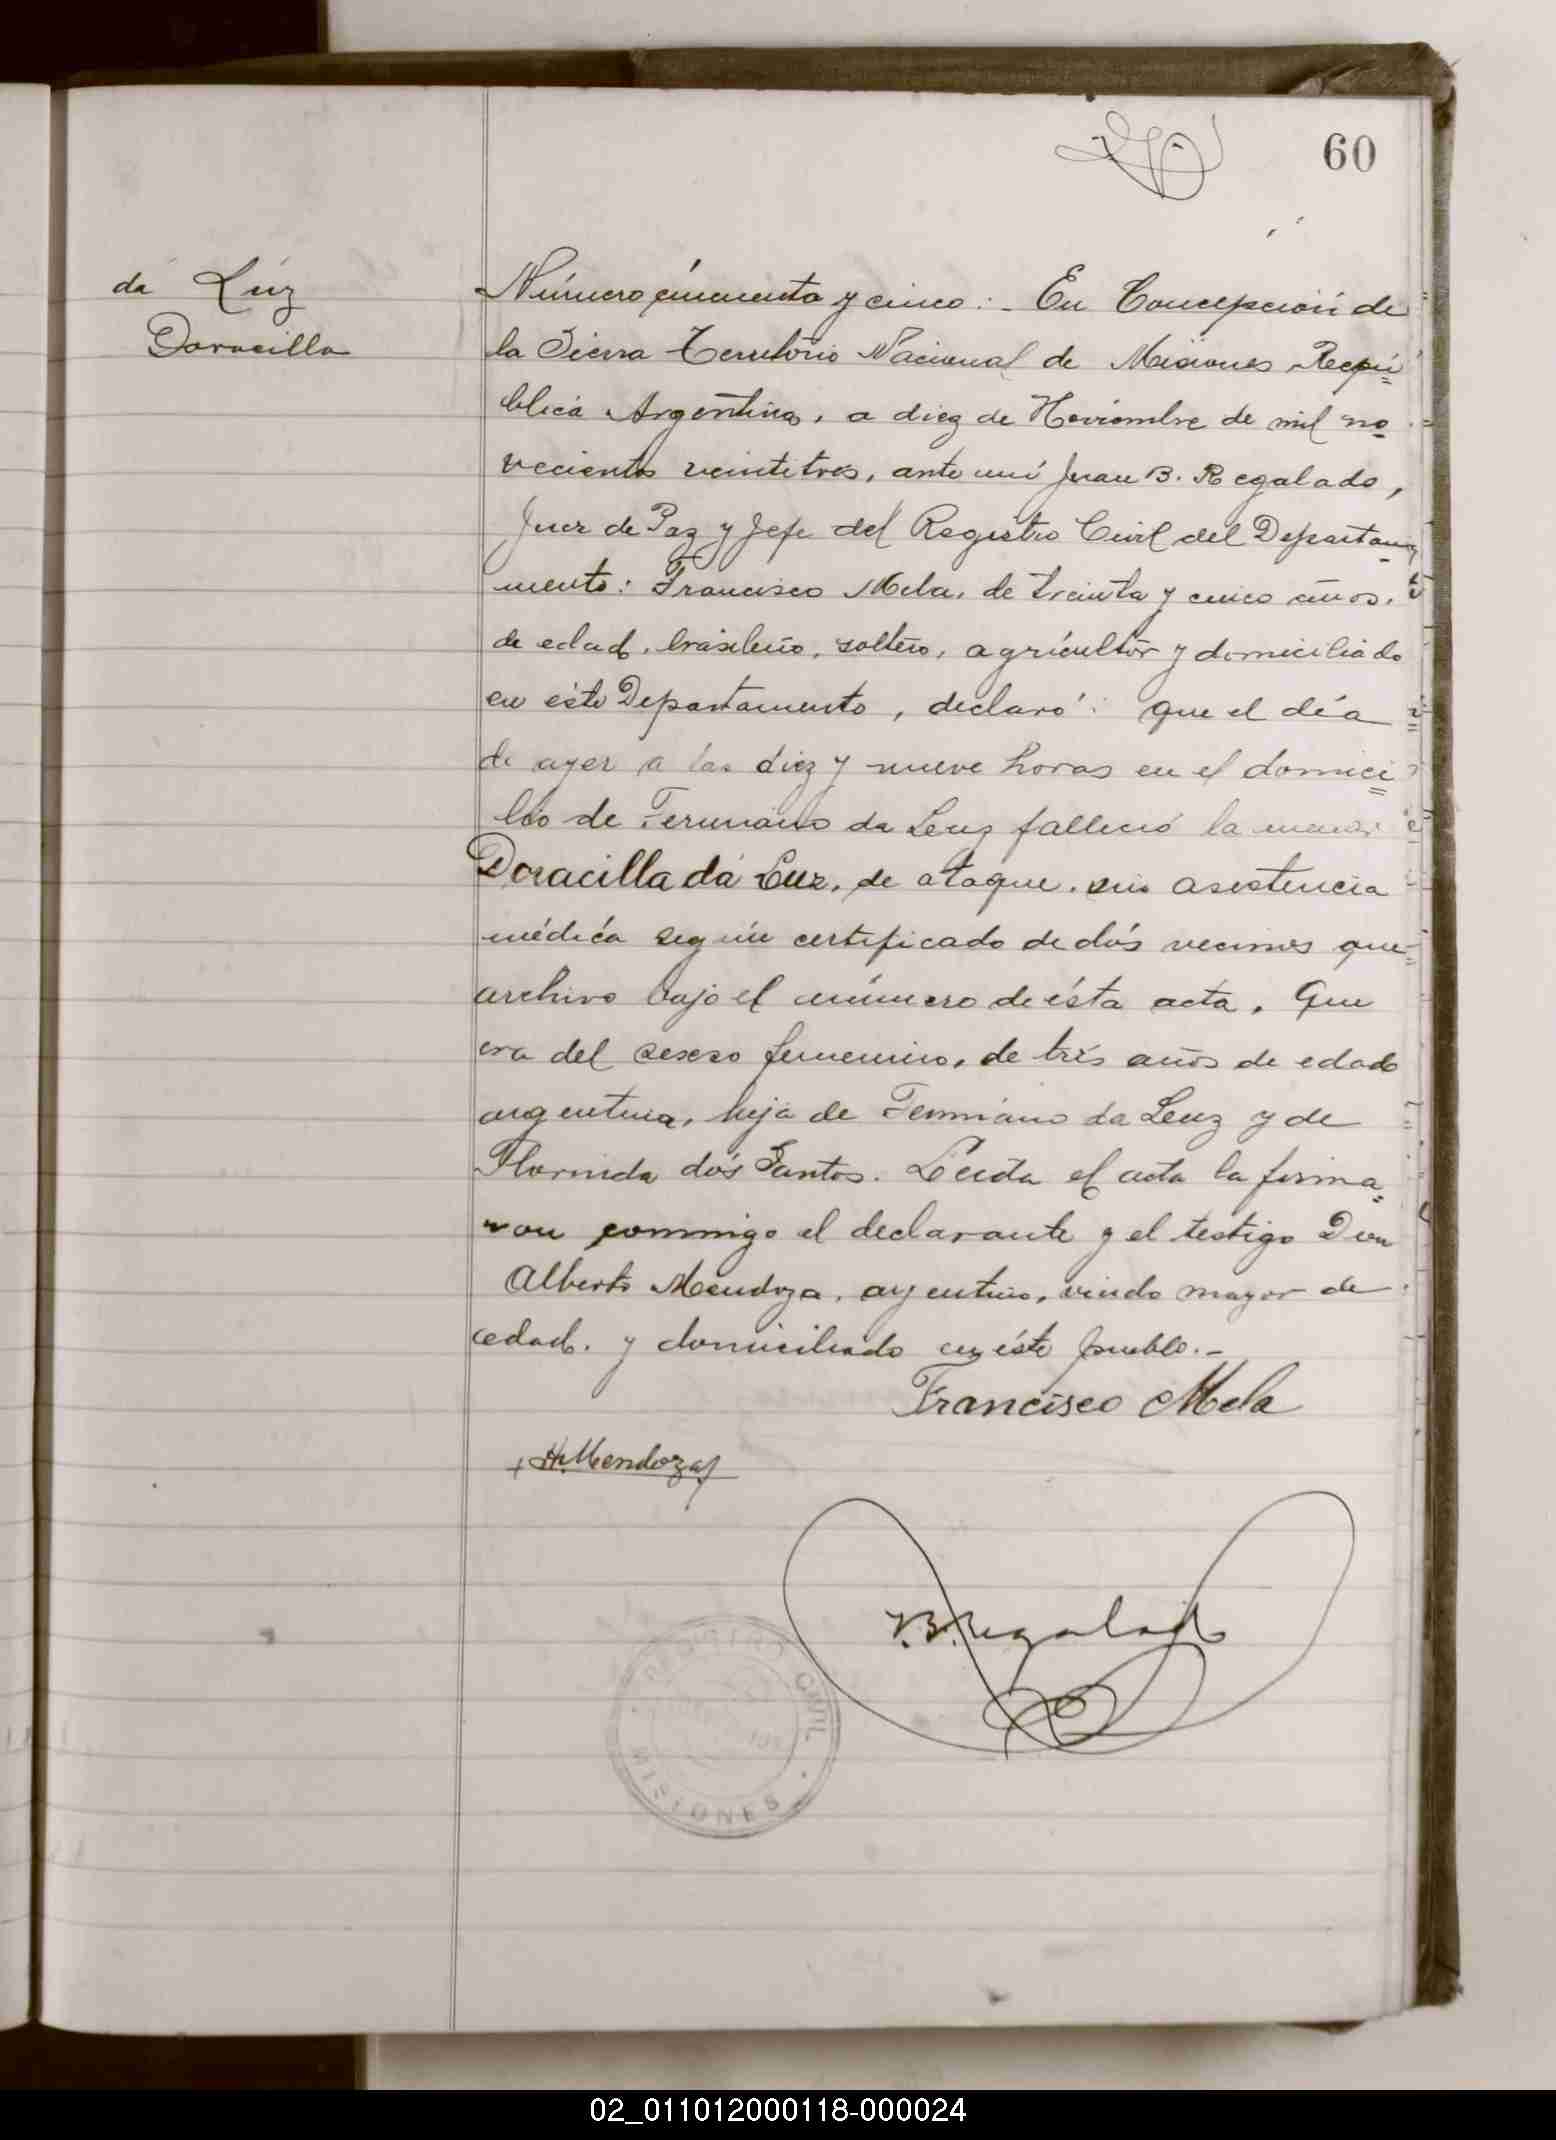 60
da Luz
Doracilla
Número cincuenta y cinco:- En Concepción de
la Sierra Territorio Nacional de Misiones Repú=
blica Argentina, a diez de Noviembre de mil no=
vecientos veintitrés, ante mí Juan B. Regalado,
Juez de Paz y Jefe del Registro Civil del Departa=
mento: Francisco Mela, de treinta y cinco años,
de edad, brasileño, soltero, agricultor y domiciliado
en éste Departamento, declaró: que el día
de ayer a las diez y nueve horas en el domici=
lio de da Luz falleció la menor
Doracilla da Luz, de ataque, sin asistencia
médica según certificado de dós vecinos que=
archivo bajo el número de ésta acta. Que
era del sexso femenino, de trés años de edad
argentina, hija de da Luz y de
dós Santos. Leída el acta la firma=
ron commigo el declarante y el testigo Don
Alberto Mendoza, argentino, viudo mayor de
edad, y domiciliado en éste pueblo.-
Francisco Mela
Mendoza
J.B. Regalado
REGISTRO CIVIL
MISIONES
02_011012000118-000024